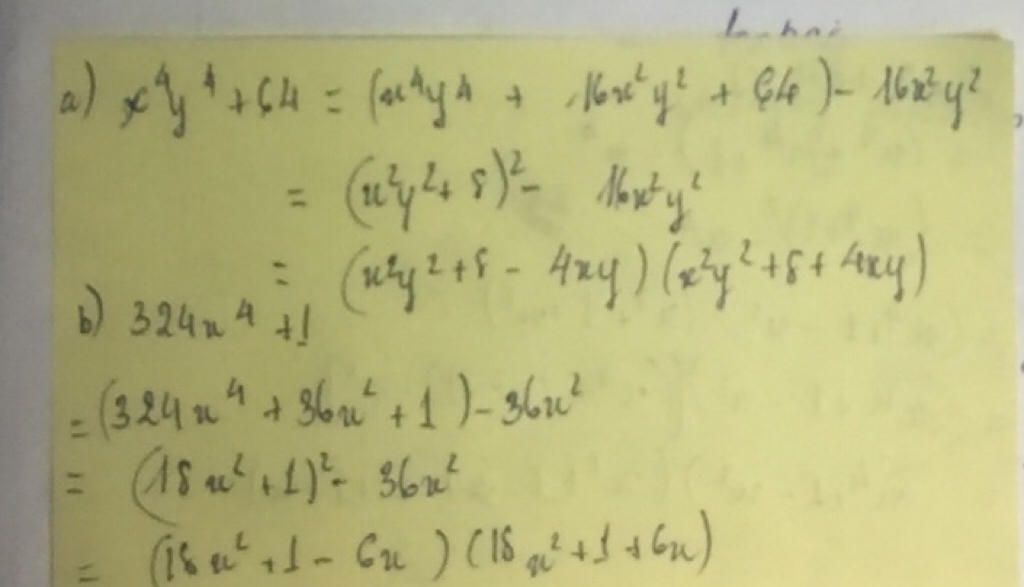 a) x⁴y⁴ + 64 = (x⁴y⁴ + 16x²y² + 64) - 16x²y²
= (x²y² + 8)² - 16x²y²
= (x²y² + 8 - 4xy) (x²y² + 8 + 4xy)
b) 324x⁴ + 1
= (324x⁴ + 36x² + 1) - 36x²
= (18x² + 1)² - 36x²
= (18x² + 1 - 6x) (18x² + 1 + 6x)